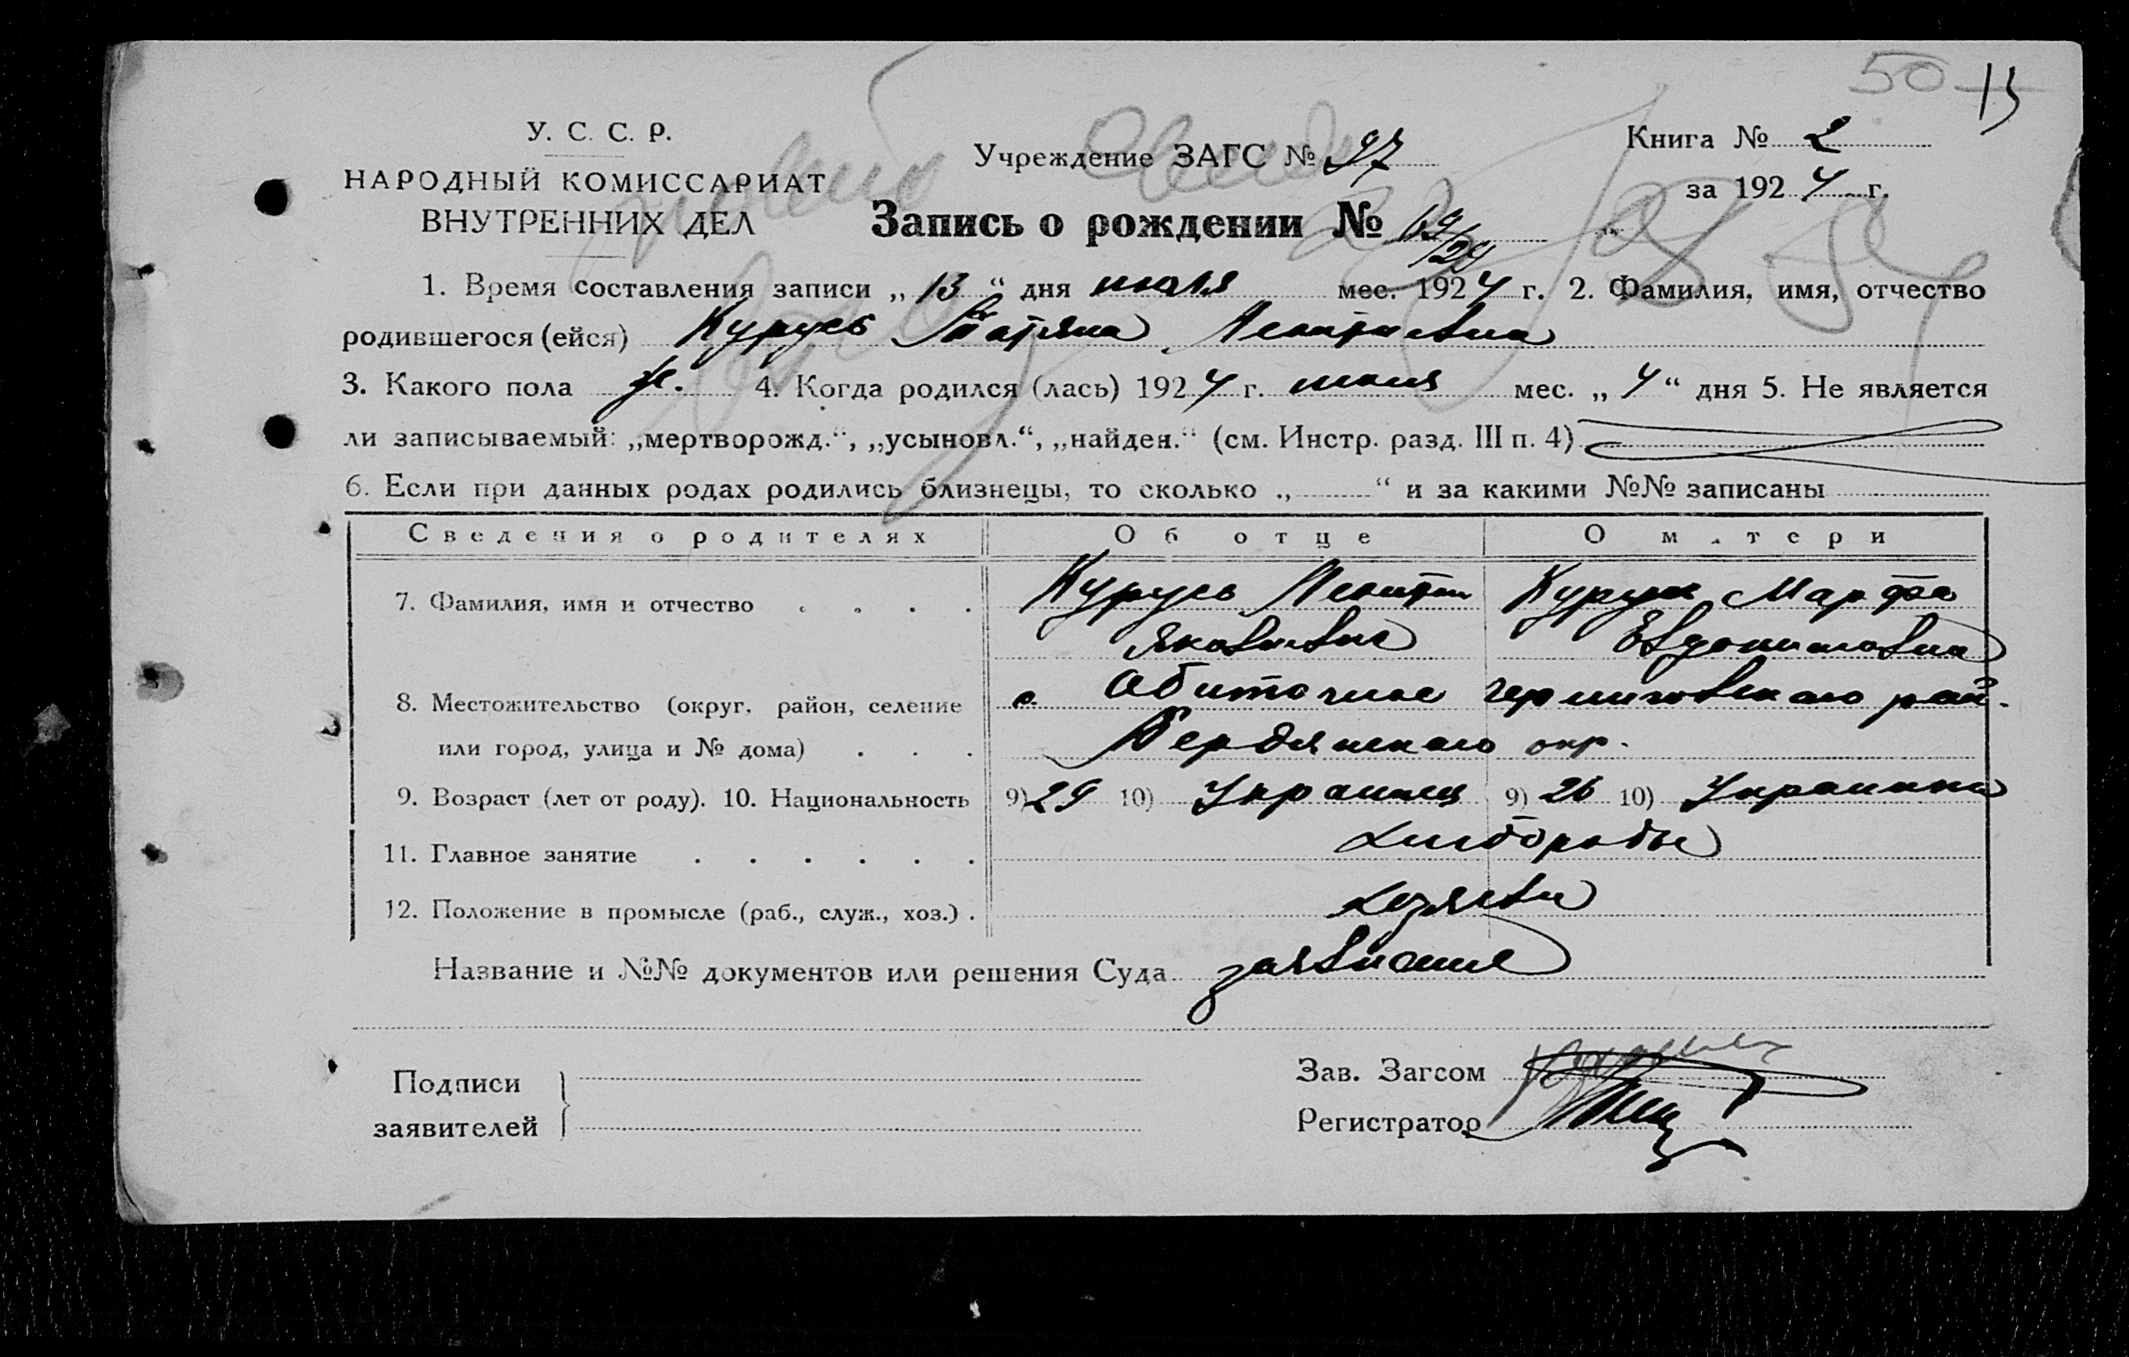 50 13
У. С. С. Р.
НАРОДНЫЙ КОМИССАРИАТ
ВНУТРЕННИХ ДЕЛ
Учреждение ЗАГС № 97
Книга № 2
за 1924 г.
Запись о рождении № 69/24
1. Время составления записи „13“ дня июля мес. 1924 г. 2. Фамилия, имя, отчество
родившегося (ейся) Курусь Татяна
3. Какого пола ж. 4. Когда родился (лась) 1924 г. июля мес. „4“ дня 5. Не является
ли записываемый: „мертворожд.“, „усыновл.“, „найден.“ (см. Инстр. разд. III п. 4)
6. Если при данных родах родились близнецы, то сколько „ “ и за какими №№ записаны
Сведения о родителях Об отце О матери
7. Фамилия, имя и отчество . . . . Курусь Курусь Марфа
Яковлевич Евдокимовна
8. Местожительство (округ, район, селение с. Обиточное Черниговского рай.
или город, улица и № дома) . . . Бердянского окр.
9. Возраст (лет от роду). 10. Национальность 9) 29 10) Украинец 9) 26 10) Украинка
11. Главное занятие . . . . . . хлеборобы
12. Положение в промысле (раб., служ., хоз.) . хозяева
Название и №№ документов или решения Суда заявление
Подписи
заявителей
Зав. Загсом
Регистратор